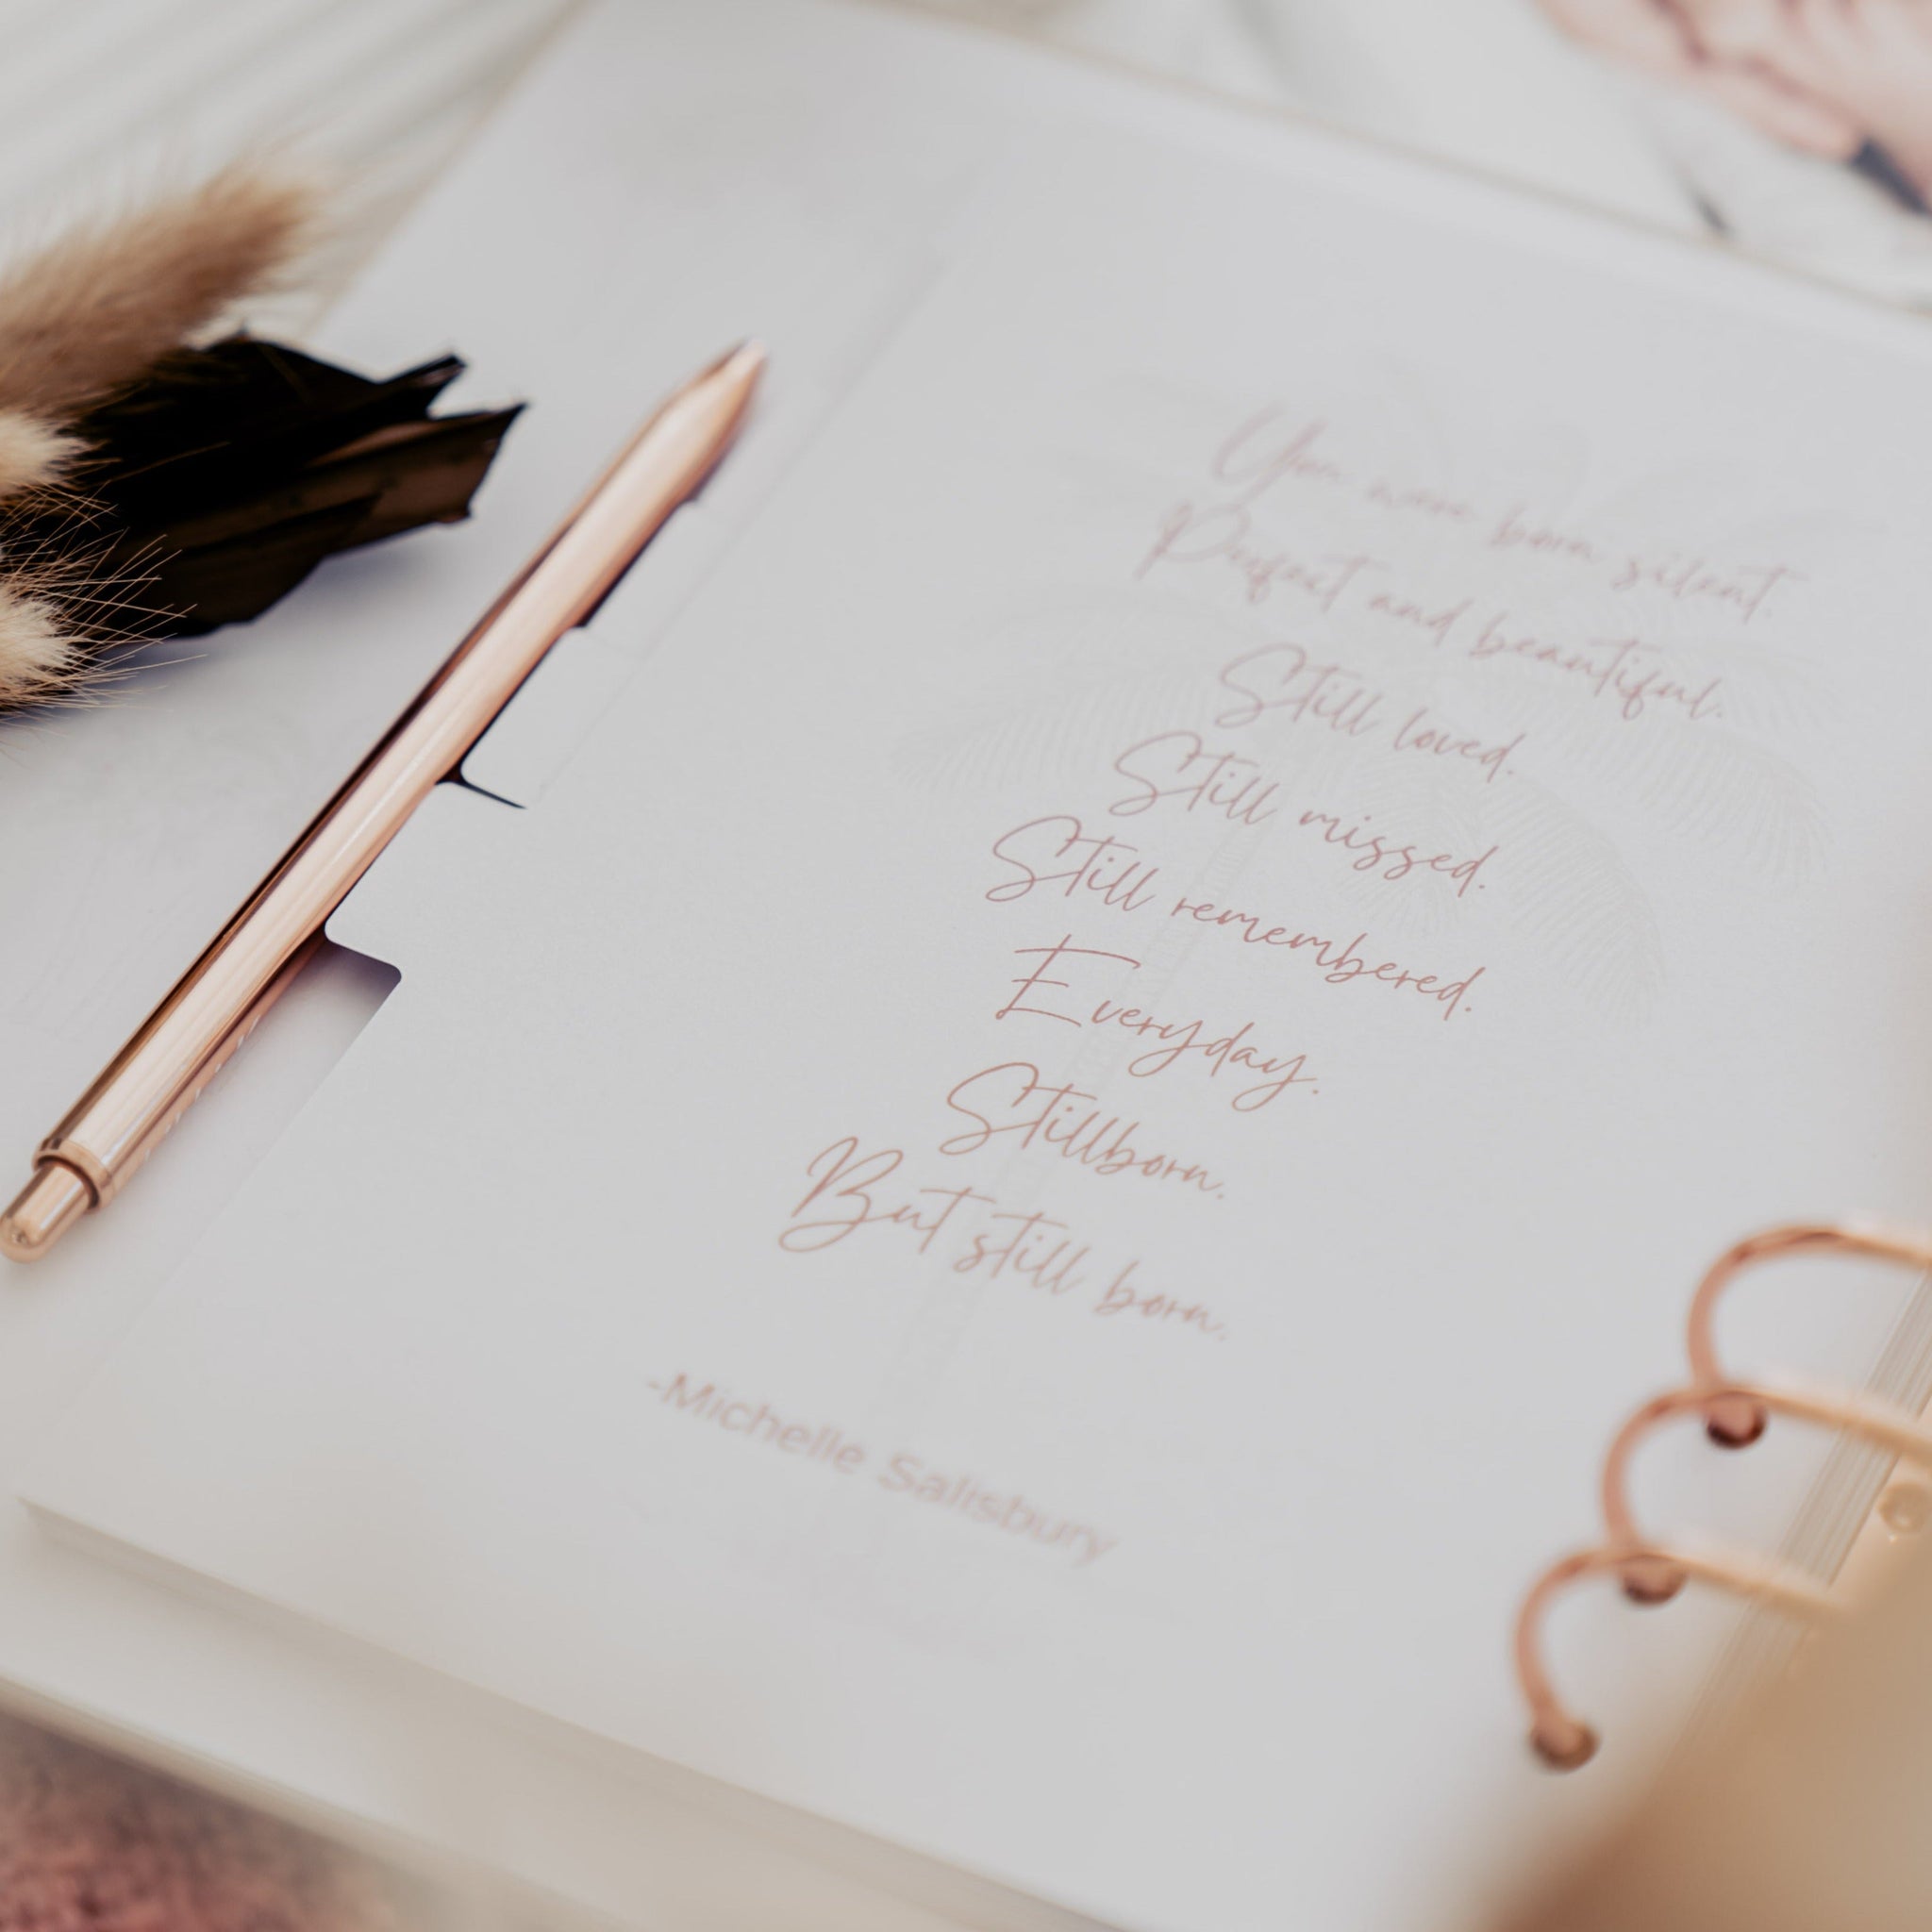 You were born silent.
Perfect and beautiful.
Still loved.
Still missed.
Still remembered.
Everyday.
Stillborn.
But still born.
-Michelle Salisbury